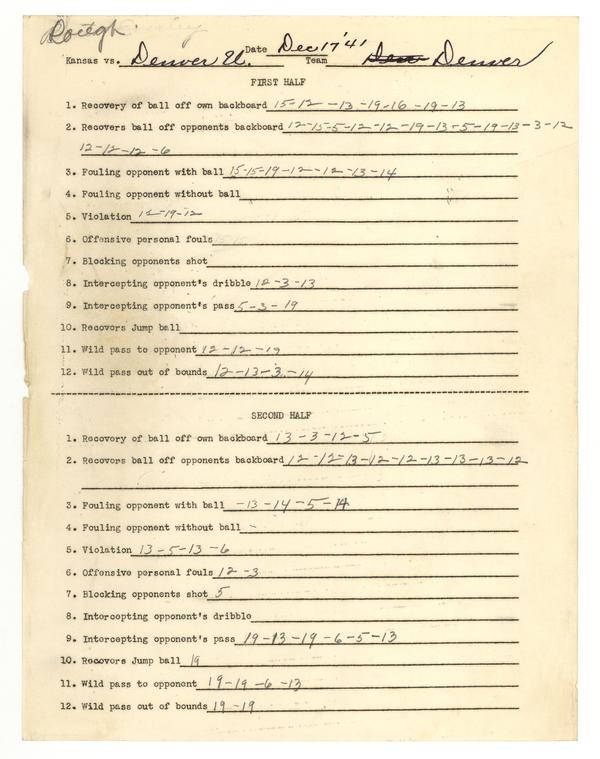 Rough
Date Dec 17 '41
Kansas vs. Denver U. Team Denver
FIRST HALF
1. Recovery of ball off own backboard 15-12-13-19-16-19-13
2. Recovers ball off opponents backboard 12-15-5-12-12-19-13-5-19-13-3-12
12-12-12-6
3. Fouling opponent with ball 15-15-19-12-12-13-14
4. Fouling opponent without ball
5. Violation 12-19-12
6. Offensive personal fouls
7. Blocking opponents shot
8. Intercepting opponent's dribble 12-3-13
9. Intercepting opponent's pass 5-3-19
10. Recovers Jump ball
11. Wild pass to opponent 12-12-19
12. Wild pass out of bounds 12-13-3-14
SECOND HALF
1. Recovery of ball off own backboard 13-3-12-5
2. Recovers ball off opponents backboard 12-12-13-12-12-13-13-13-12
3. Fouling opponent with ball -13-14-5-14
4. Fouling opponent without ball -
5. Violation 13-5-13-6
6. Offensive personal fouls 12-3
7. Blocking opponents shot 5
8. Intercepting opponent's dribble
9. Intercepting opponent's pass 19-13-19-6-5-13
10. Recovers Jump ball 19
11. Wild pass to opponent 19-19-6-13
12. Wild pass out of bounds 19-19